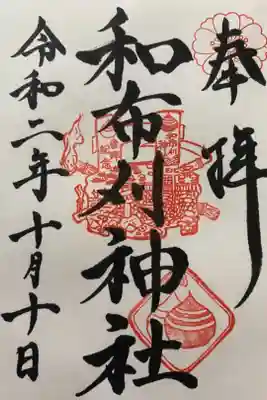 奉拝
和布刈神社
令和二年十月十日